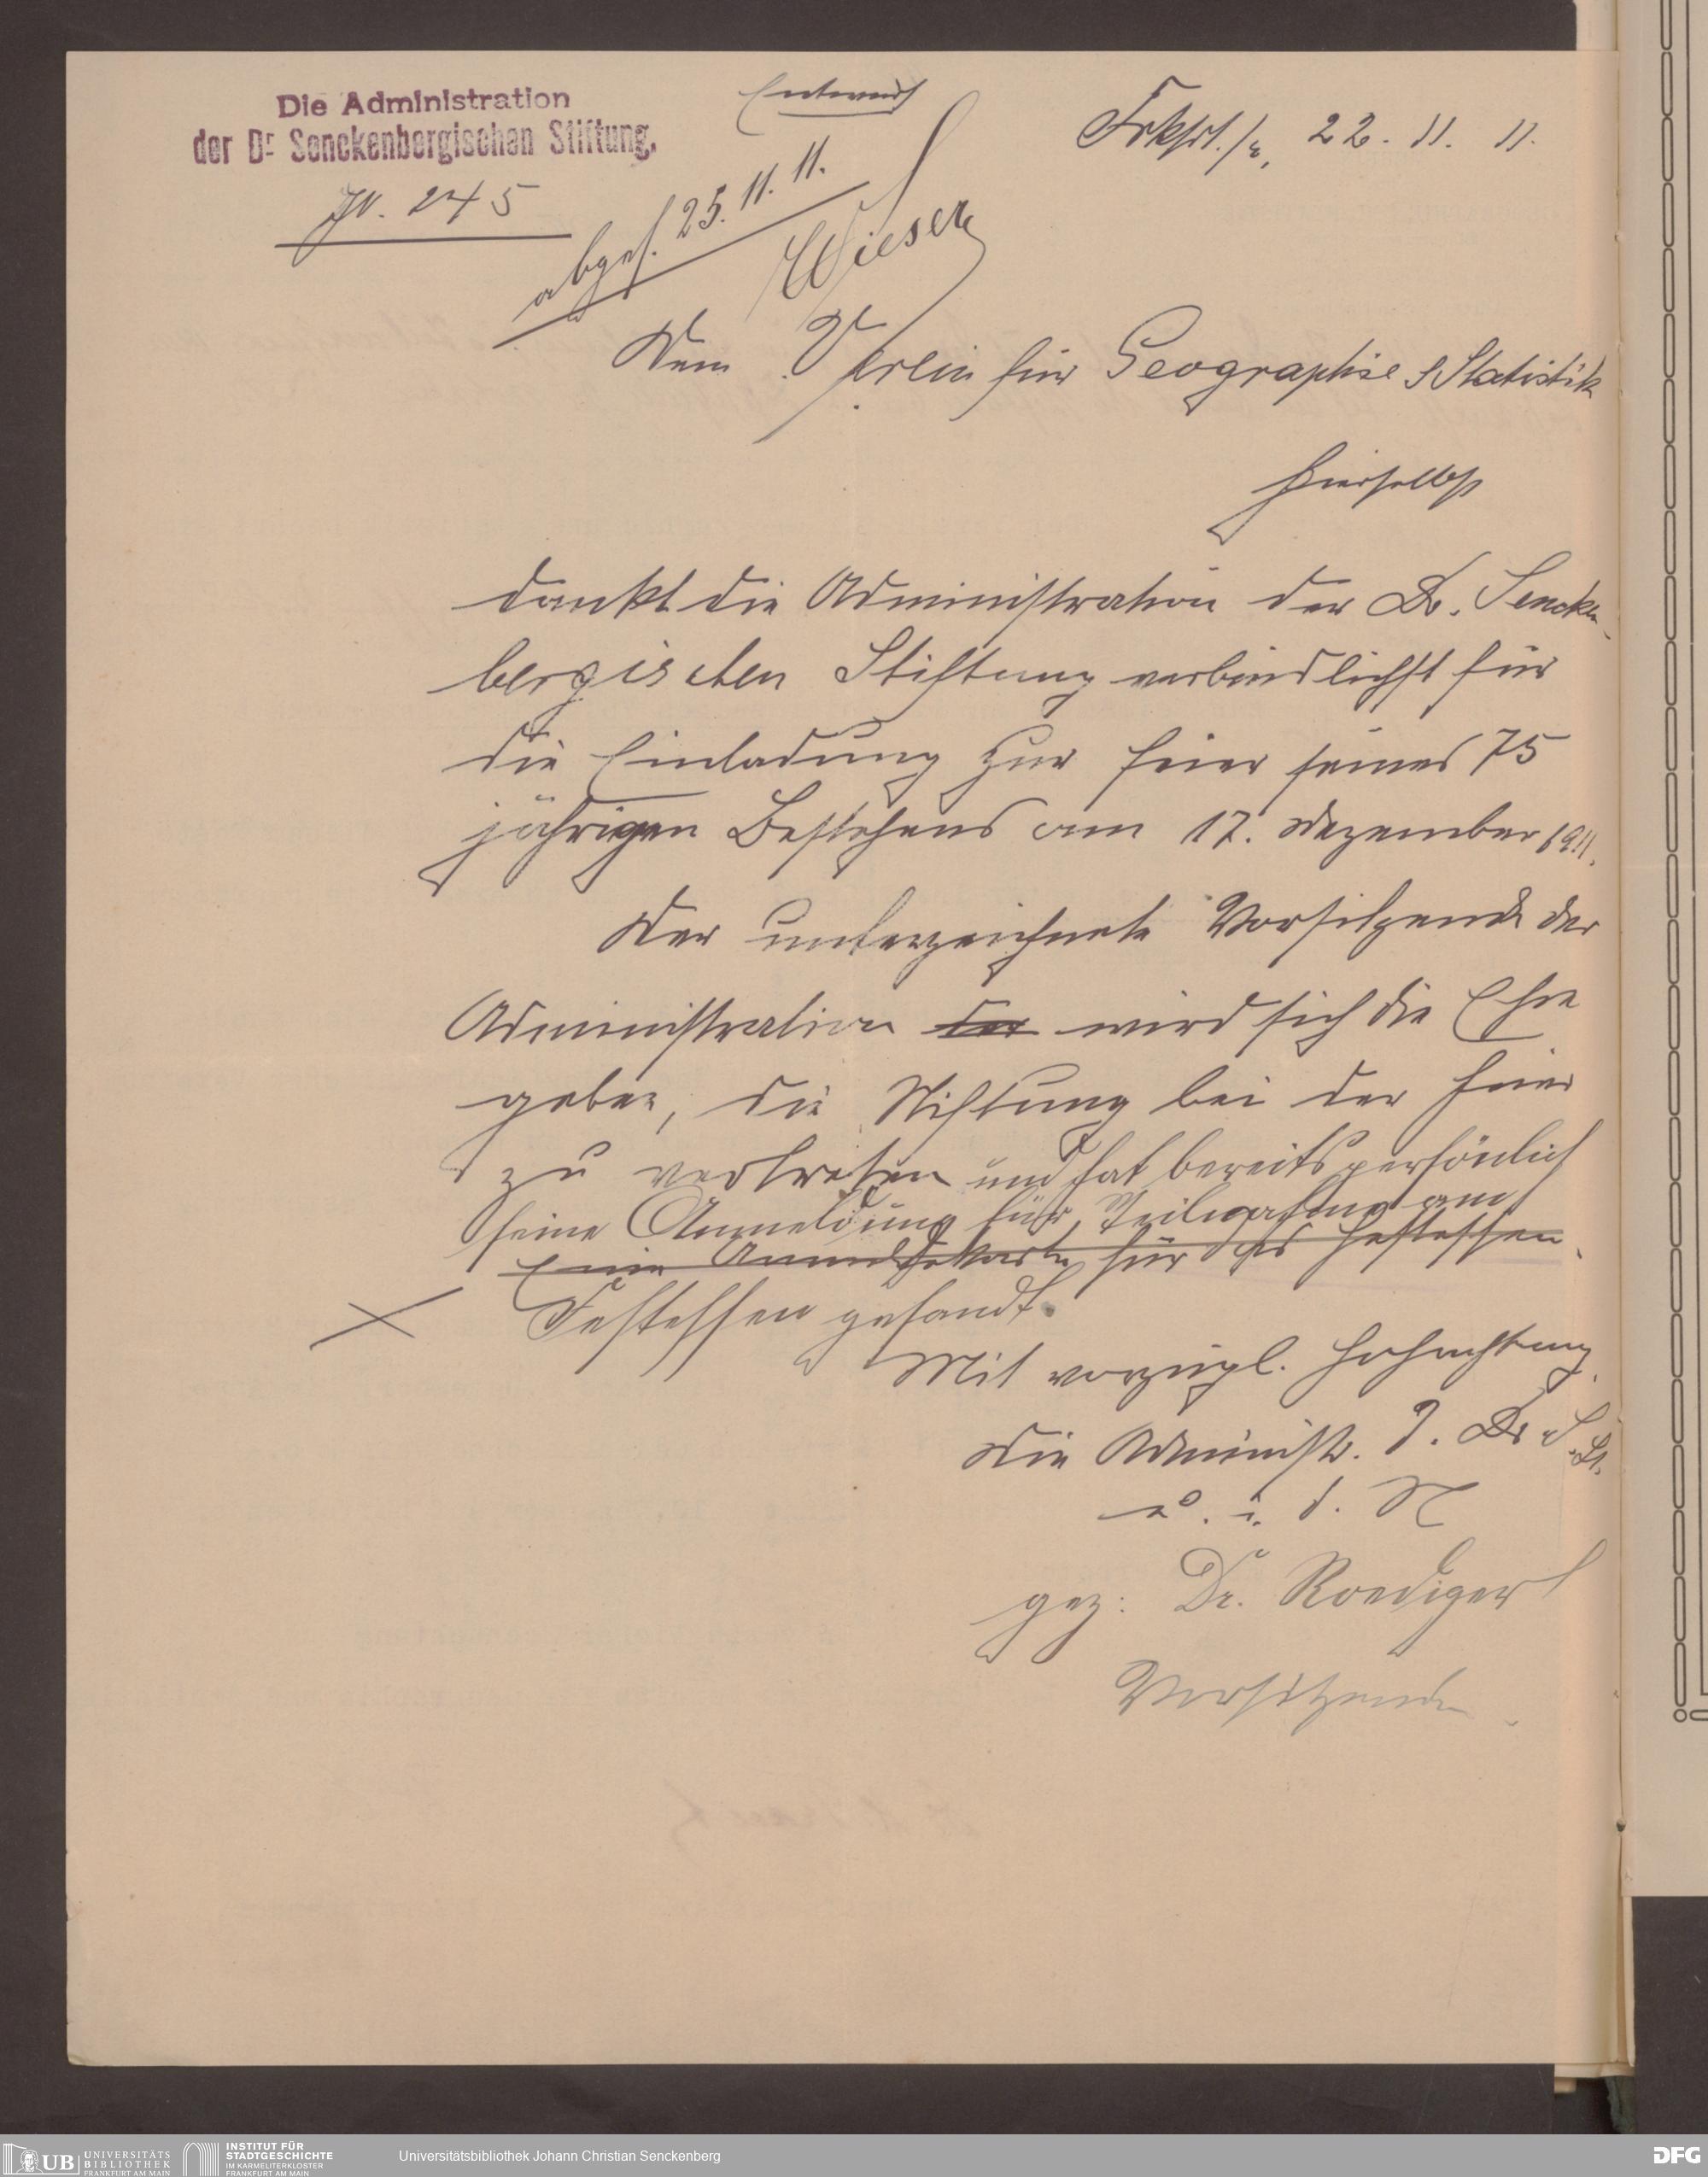 Die Administration
der Dr Senckenbergischen Stiftung.
JN. 245
Entwurf
abges. 25. 11. 11.
Wieser
Frkfrt. 22. 11. 11.
Dem Verein für Geographie & Statistik
hierselbst
dankt die Administration der Dr. Sencken-
bergischen Stiftung verbindlichst für
die Einladung zur Feier seines 75
jährigen Bestehens am 17. Dezember 1911.
Der unterzeichnete Vorsitzende der
Administration der wird sich die Ehre
geben, die Stiftung bei der Feier
zu vertreten und hat bereits persönlich
seine Anmeldung für Teilnahme am
Eine Anmeldekarte für das Festessen
Festessen gesandt.
Mit vorzügl. Hochachtung
Die Administr. d. Dr. S. St.
u. i. d. N
gez: Dr. Roediger
Vorsitzender
UB UNIVERSITÄTS
BIBLIOTHEK
FRANKFURT AM MAIN
INSTITUT FÜR
STADTGESCHICHTE
IM KARMELITERKLOSTER
FRANKFURT AM MAIN
Universitätsbibliothek Johann Christian Senckenberg
DFG